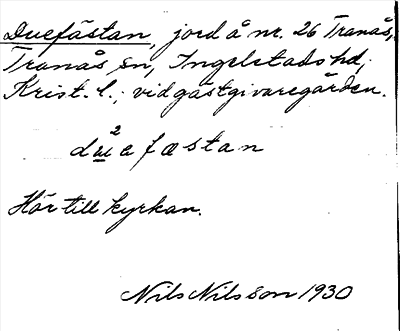 Duefästan, jord å nr. 26 Tranås,
Tranås sn, Ingelstads hd,
Krist. l.; vid gästgivaregården.
du²a fæstan
Hör till kyrkan.
Nils Nilsson 1930